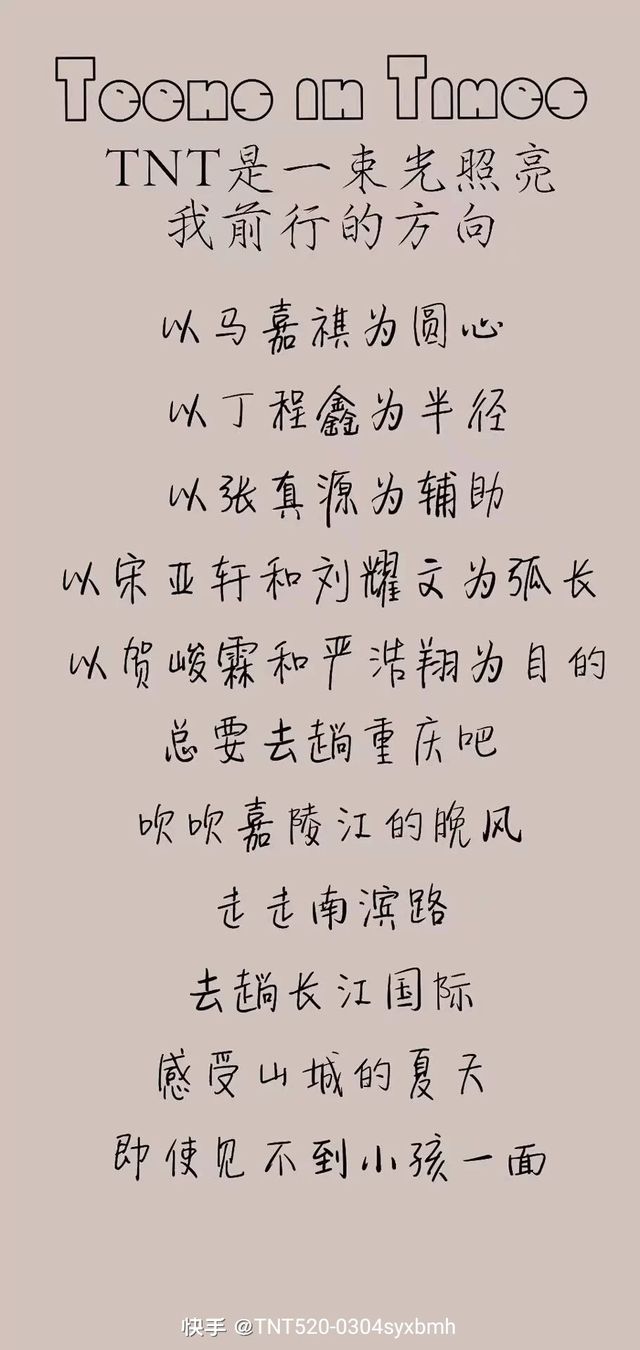 Teens in Times
TNT是一束光照亮
我前行的方向
以马嘉祺为圆心
以丁程鑫为半径
以张真源为辅助
以宋亚轩和刘耀文为弧长
以贺峻霖和严浩翔为目的
总要去趟重庆吧
吹吹嘉陵江的晚风
走走南滨路
去趟长江国际
感受山城的夏天
即使见不到小孩一面
快手 @TNT520-0304syxbmh